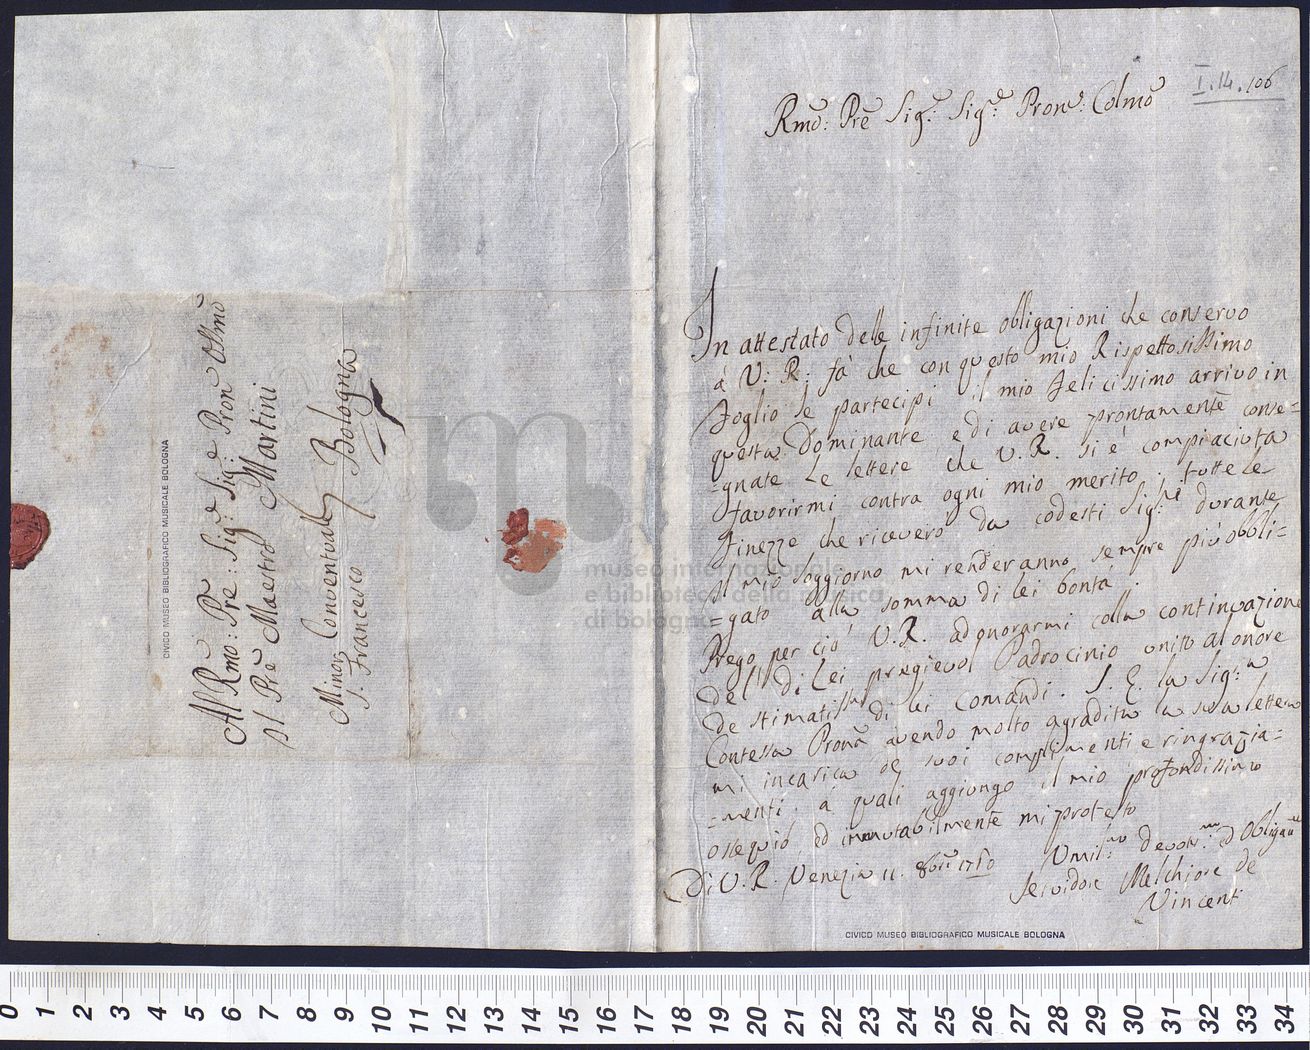 Al Rmo: Pre: Sig.r Sig.r e Pron Olmo
Il Pre Maestro Martini
Minor Conventuale Bologna
S. Francesco
CIVICO MUSEO BIBLIOGRAFICO MUSICALE BOLOGNA
I.14.106
Rmo: Pre Sig.r Sig.r Pron.e Colmo
In attestato delle infinite obligazioni che conservo
à V: R: fà che con questo mio Rispettosissimo
foglio le partecipi il mio felicissimo arrivo in
questa Dominante e di avere prontamente conse=
=gnate le lettere che V.R. si è compiaciuta
favorirmi contra ogni mio merito. tutte le
finezze che riceverò da codesti Sig.ri durante
il mio soggiorno mi renderanno sempre più obbli-
=gato alla somma di lei bontà.
Prego per ciò V.R. adonorarmi colla continuazione
del di Lei pregievol Padrocinio unito al onore
de stimatis.mi di lei comandi. S.E. la Sig.ra
Contessa Prona avendo molto agradita la sua lettera
mi incarica de suoi complimenti e ringrazia=
=menti. à quali aggiungo il mio profondissimo
ossequio, ed immutabilmente mi protesto
Di V.R. Venezia 11. 8bre 1750
Umil.mo Devot.mo ed Obligat.mo
Servidore Melchiore de
Vincenti
CIVICO MUSEO BIBLIOGRAFICO MUSICALE BOLOGNA
museo internazionale
e biblioteca della musica
di bologna
0 1 2 3 4 5 6 7 8 9 10 11 12 13 14 15 16 17 18 19 20 21 22 23 24 25 26 27 28 29 30 31 32 33 34